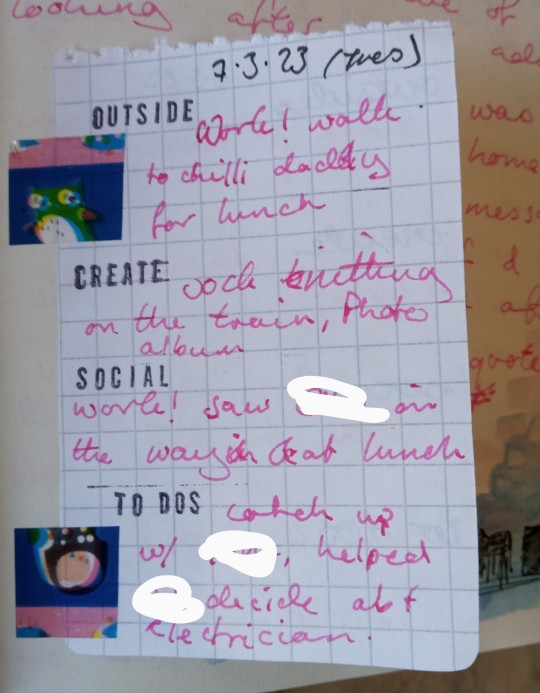 looking after
7.3.23 (tues)
OUTSIDE Work! walk
to chilli daddy
for lunch
CREATE sock knitting
on the train, Photo
album
SOCIAL
work! saw on
the way in & at lunch
TO DOS catch up
w/ , helped
decide abt
electrician.
was
home
mess
quote